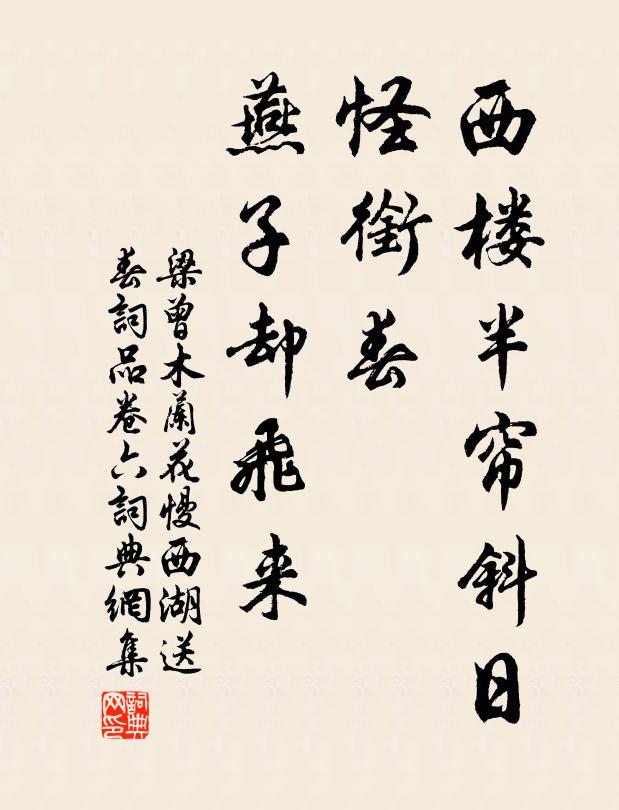 西楼半帘斜日
怪衔春
燕子却飛来
梁曾木蘭花慢西湖送
春詞品卷六詞典網集
詞典网印